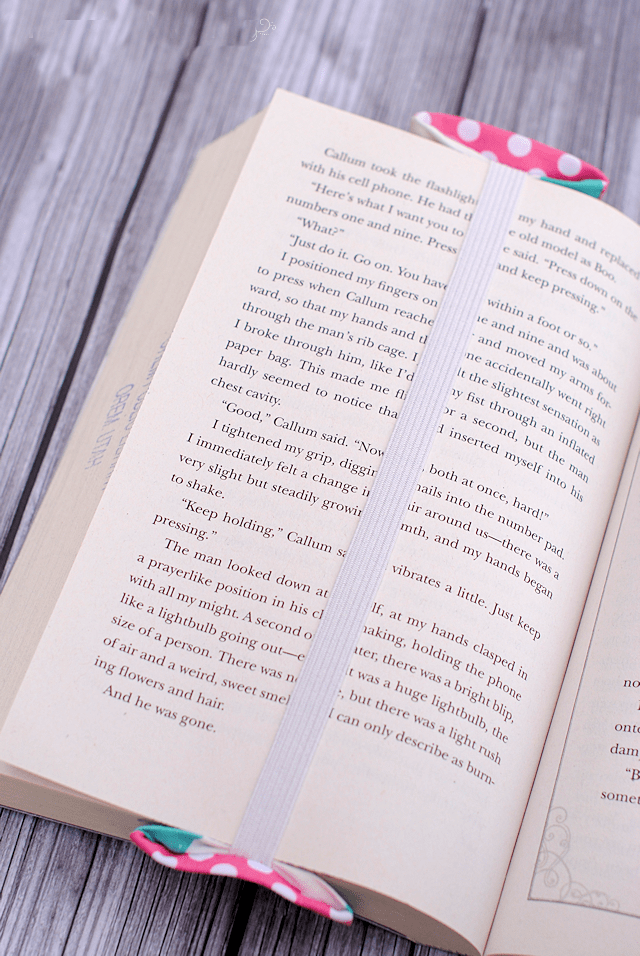 Callum took the flashligh my hand and replace
with his cell phone. He had th e old model as Boo.
"Here's what I want you to e said. "Press down on the
numbers one and nine. Press and keep pressing."
"What?"
"Just do it. Go on. You have within a foot or so."
I positioned my fingers on ne and nine and was about
to press when Callum reache and moved my arms for-
ward, so that my hands and th one accidentally went right
through the man's rib cage. I lt the slightest sensation as
I broke through him, like I'd y fist through an inflated
paper bag. This made me fl or a second, but the man
hardly seemed to notice tha d inserted myself into his
chest cavity.
"Good," Callum said. "Now , both at once, hard!"
I tightened my grip, diggin nails into the number pad.
I immediately felt a change i air around us—there was a
very slight but steadily growi mth, and my hands began
to shake.
"Keep holding," Callum sa vibrates a little. Just keep
pressing."
The man looked down at lf, at my hands clasped in
a prayerlike position in his ch making, holding the phone
with all my might. A second o ter, there was a bright blip,
like a lightbulb going out—e t was a huge lightbulb, the
size of a person. There was no , but there was a light rush
of air and a weird, sweet smel I can only describe as burn-
ing flowers and hair.
And he was gone.
OREM, UTAH
no
onto
dam
"B
somet